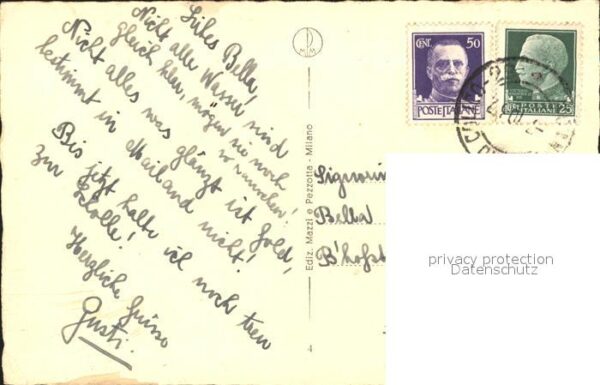 Liebes Bella!
Nicht alle Wasser sind
gleich klar, mögen sie noch
so rauschen!
Nicht alles was glänzt ist Gold,
bestimmt in Mailand nicht!
Bis jetzt halte ich noch treu
zur Scholle!
Herzliche Grüsse
Gusti.
M M
Ediz. Mazzi e Pezzotta - Milano
4
CENT. 50
POSTE ITALIANE
POSTE
ITALIANE 25
Signorin
Bella
B'hofst
privacy protection
Datenschutz